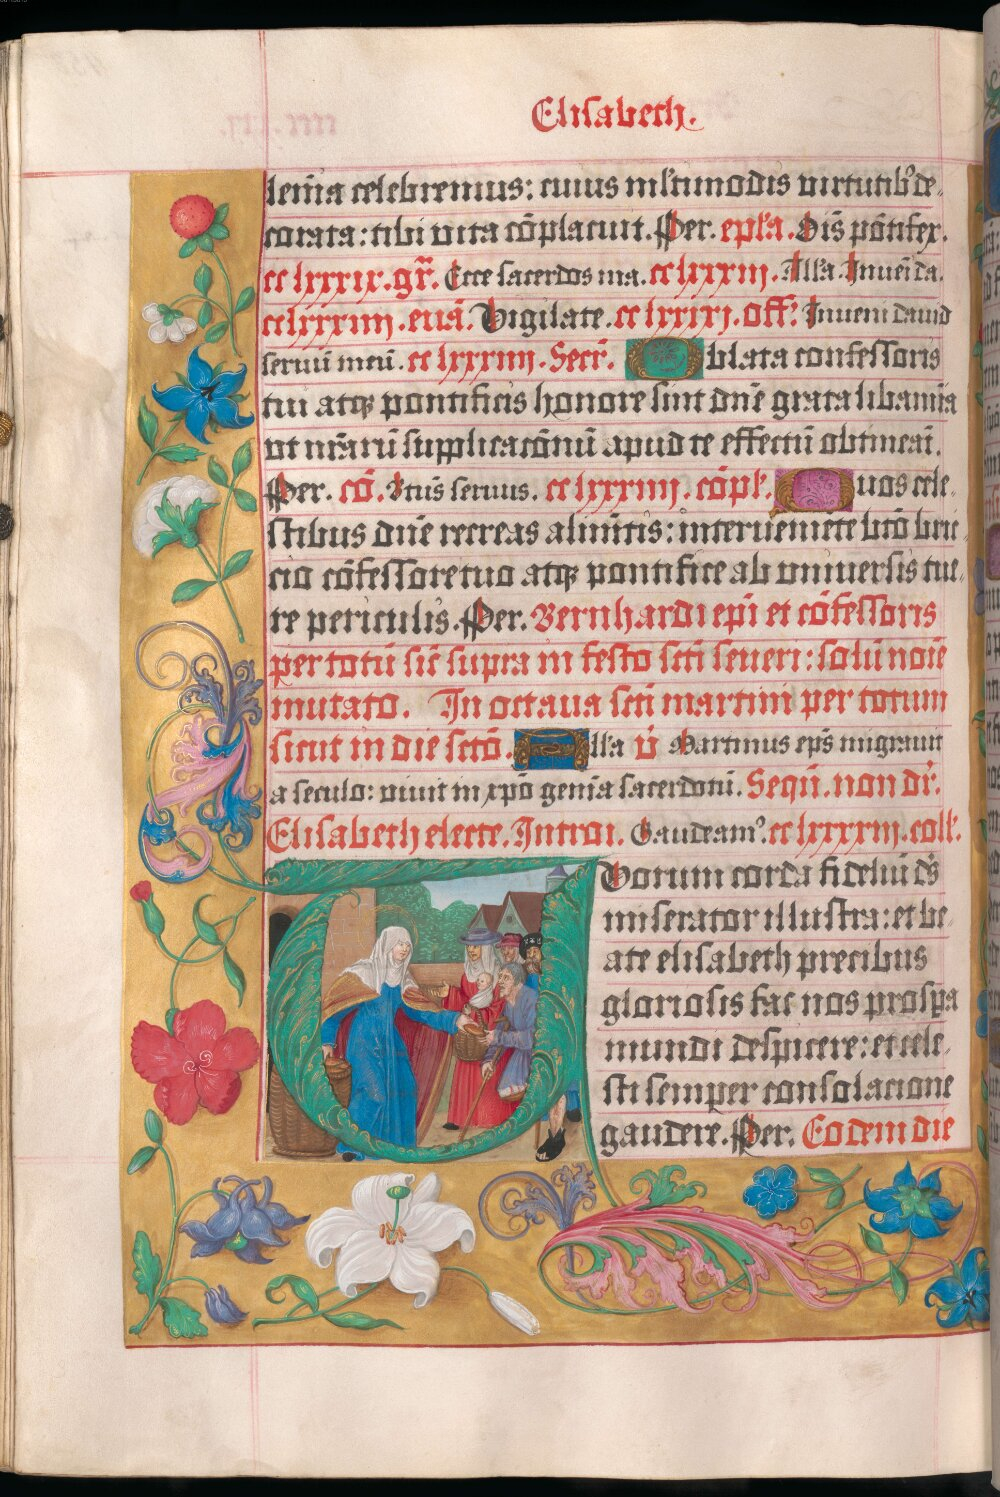 Elisabeth.
lem̄ia celebremus: cuius ml̄timodis virtutib9 de-
corata: tibi vita cōplacuit. Per. epl'a. Oīs pōtifex.
cclxxxix. gr̄. Ecce sacerdos ma. cclxxxiij. All'a. Inueni da.
cclxxxiiij. euā. Vigilate. cclxixj. off. Inueni dauid
seruū meū. cclxxxiiij. Secr̄. Oblata confessoris
tui atqꝫ pontificis honore sint dn̄e grata libamīa
vt nr̄arū supplicacōnū apud te effectū obtineāt.
Per. cō. Vtūs seruus. cclxxxiiij. cōpl'. Quos cele-
stibus dn̄e recreas alim̄tis: interueniēte btō bric-
cio cōfessore tuo atqꝫ pontifice ab vniuersis tue-
re periculis. Per. Bernhardi ep̄i et cōfessoris
per totū sic̄ supra in festo sc̄ti seueri: solū noīe
mutato. In octaua sc̄ti martini per totum
sicut in die sc̄tō. All'a v̄ Martinus ep̄s migrauit
a seculo: viuit in xp̄o gem̄a sacerdotū. Seqū. non dr̄.
Elisabeth electe. Introi. Gaudeam9. cclxxxxiij. coll'.
Tuorum corda fideliū ds̄
miserator illustra: et be-
ate elisabeth precibus
gloriosis fac nos prospa
mundi despicere: et cele-
sti semper consolacione
gaudere. Per. Eodem die